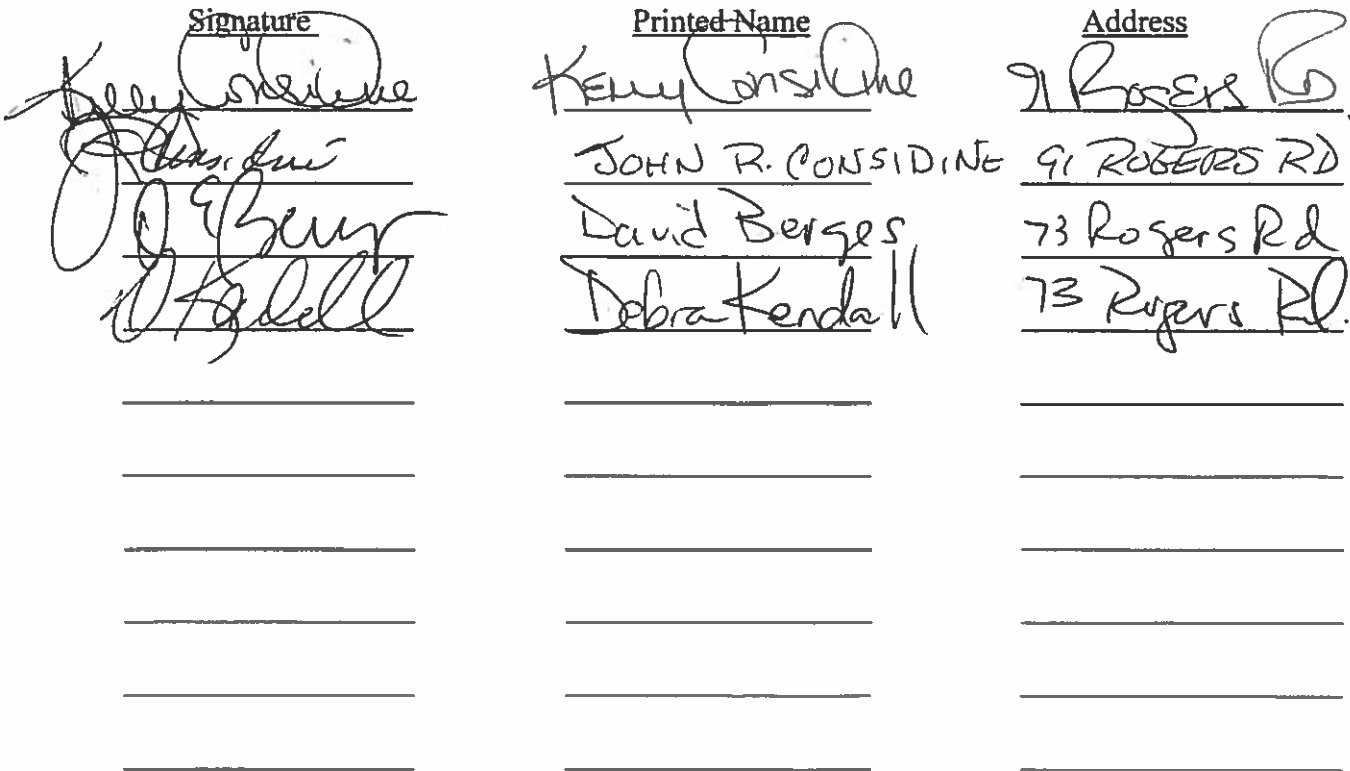 Signature Printed Name Address
Kelly Considine Kelly Considine 91 Rogers RD
J Considine JOHN R. CONSIDINE 91 ROGERS RD
D E Berges David Berges 73 Rogers Rd
D Kendall Debra Kendall 73 Rogers Rd.